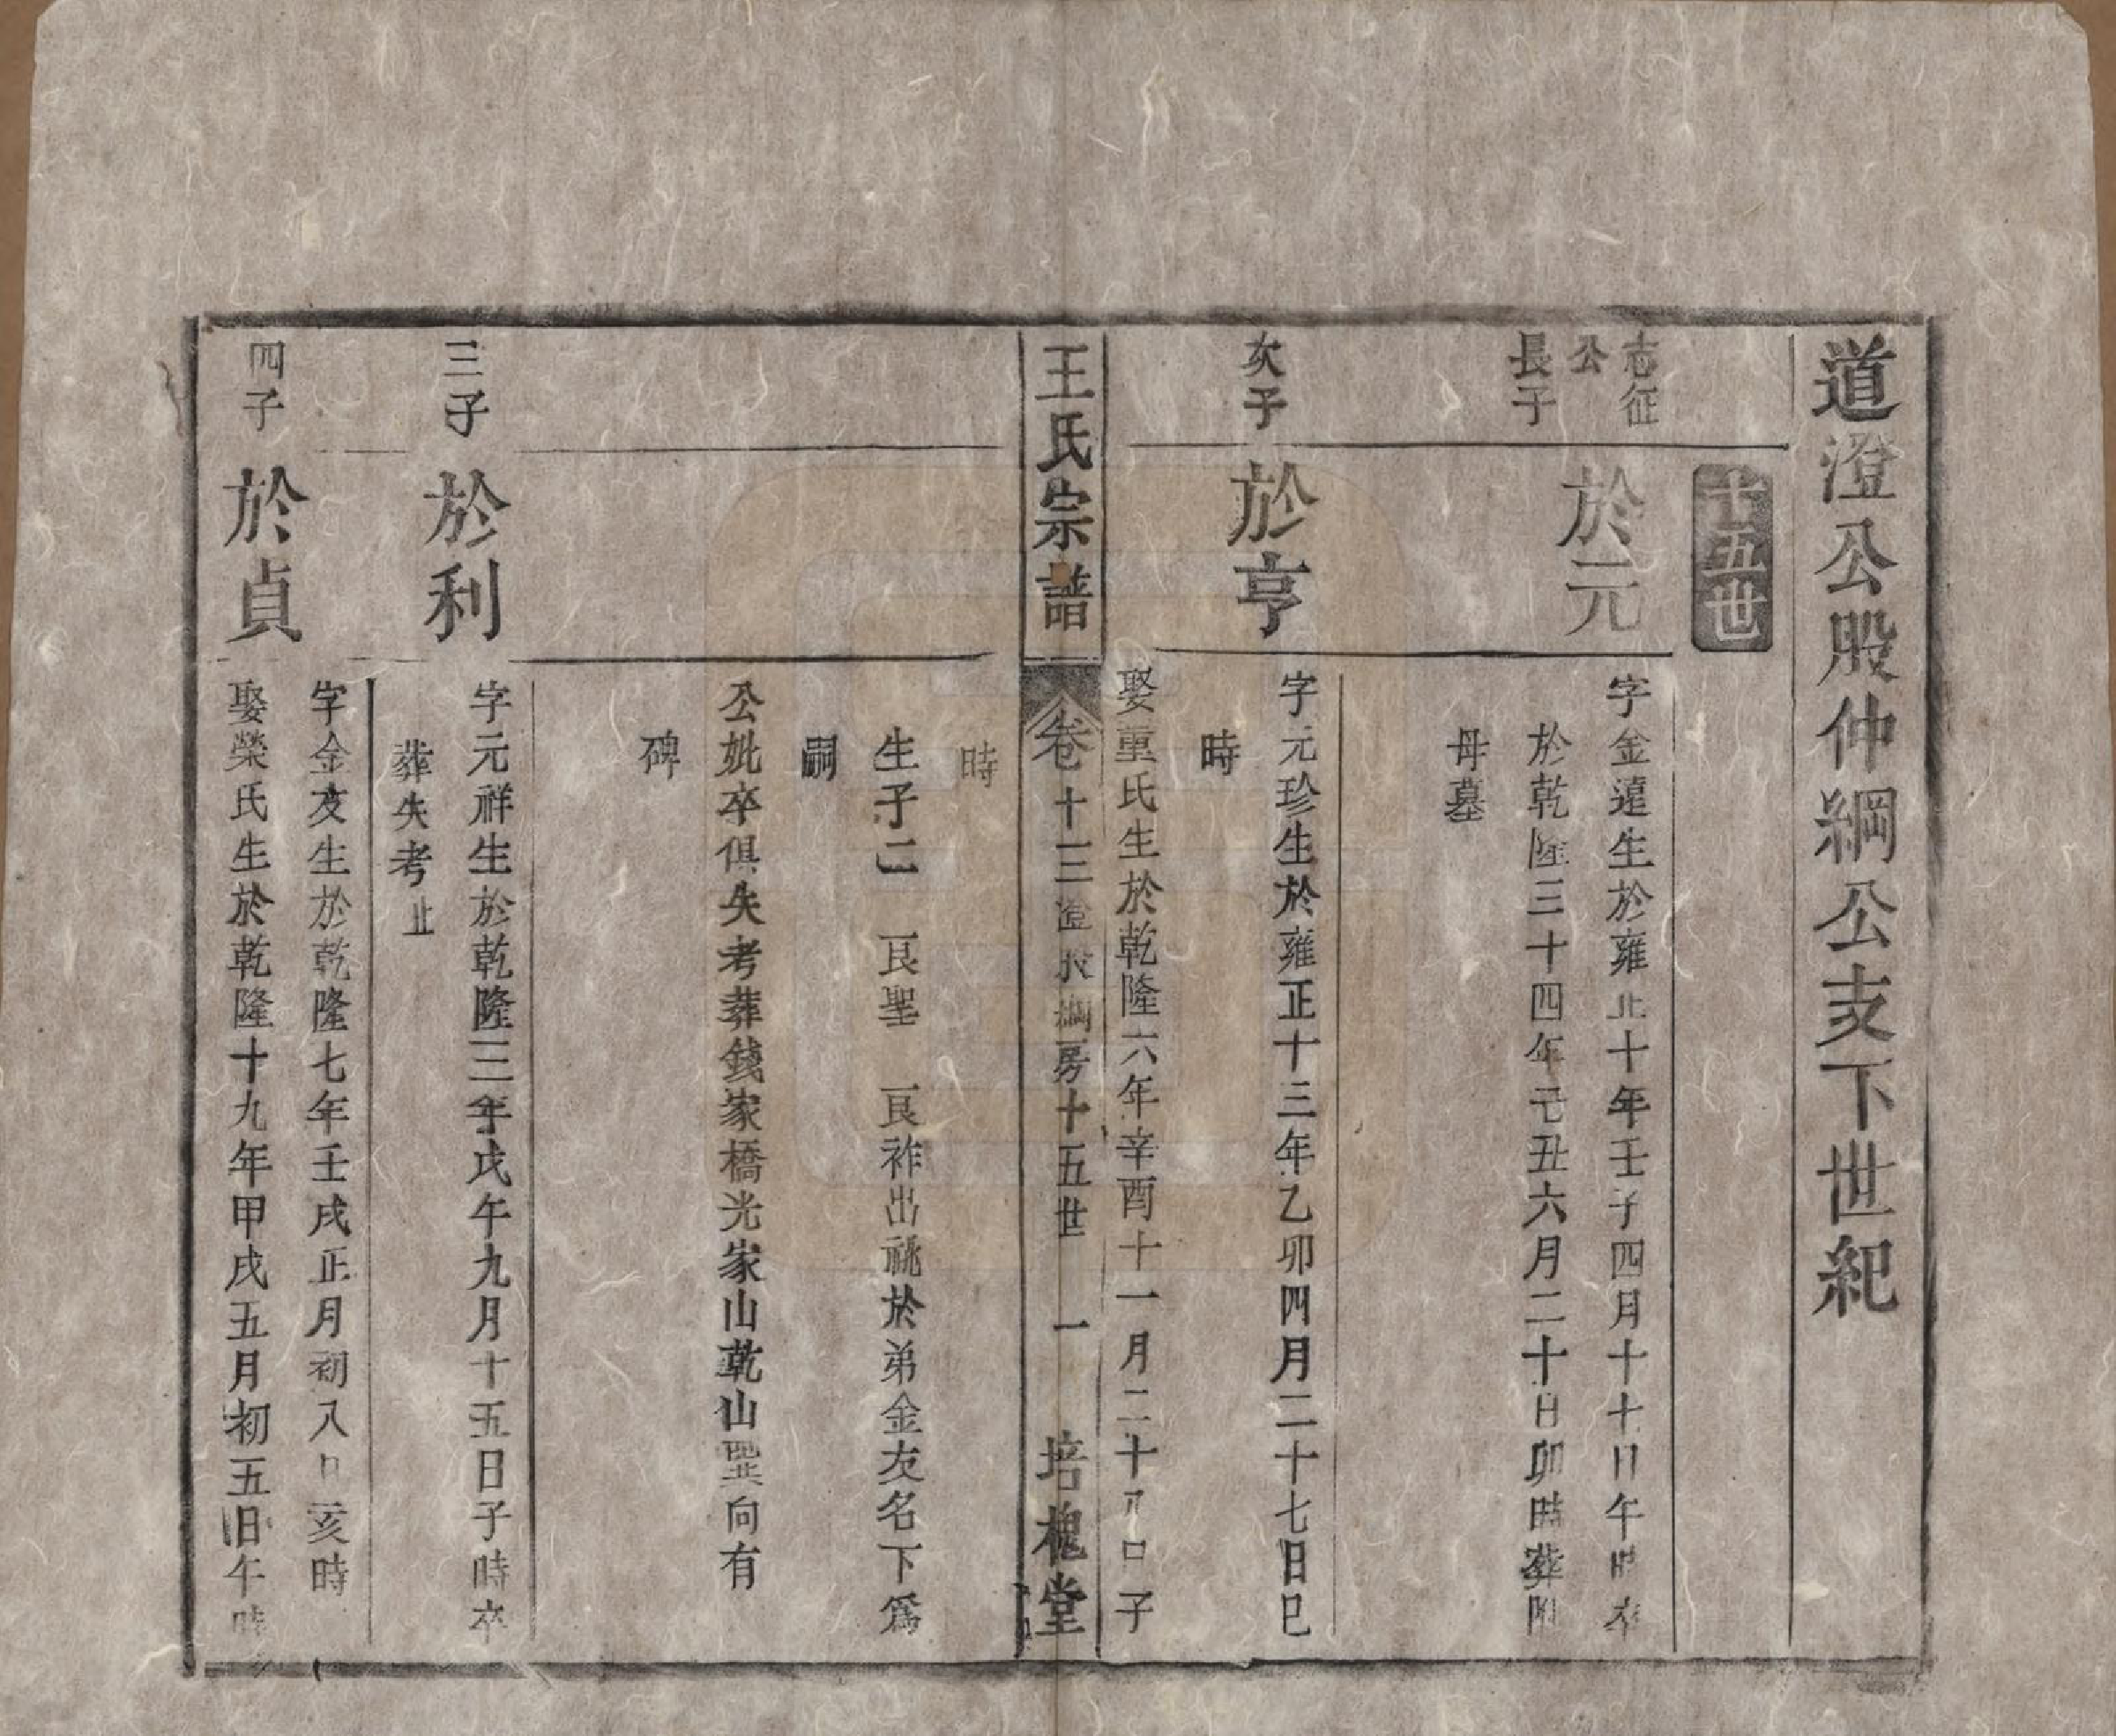 道澄公股仲綱公支下世紀
十五世
志征
公
長子
於元
字金遠生於雍正十年壬子四月十七日午時卒
於乾隆三十四年己丑六月二十日卯時葬附
母墓
次子
於亨
字元珍生於雍正十三年乙卯四月二十七日巳
時
娶重氏生於乾隆六年辛酉十一月二十八日子
王氏宗譜 卷十三 澄股綱房十五世 一 培槐堂
時
生子二 艮聖 艮祚出祧於弟金友名下為
嗣
公妣卒俱失考葬錢家橋光家山乾山巽向有
碑
三子
於利
字元祥生於乾隆三年戊午九月十五日子時卒
葬失考止
四子
於貞
字金友生於乾隆七年壬戌正月初八日亥時
娶榮氏生於乾隆十九年甲戌五月初五日午時